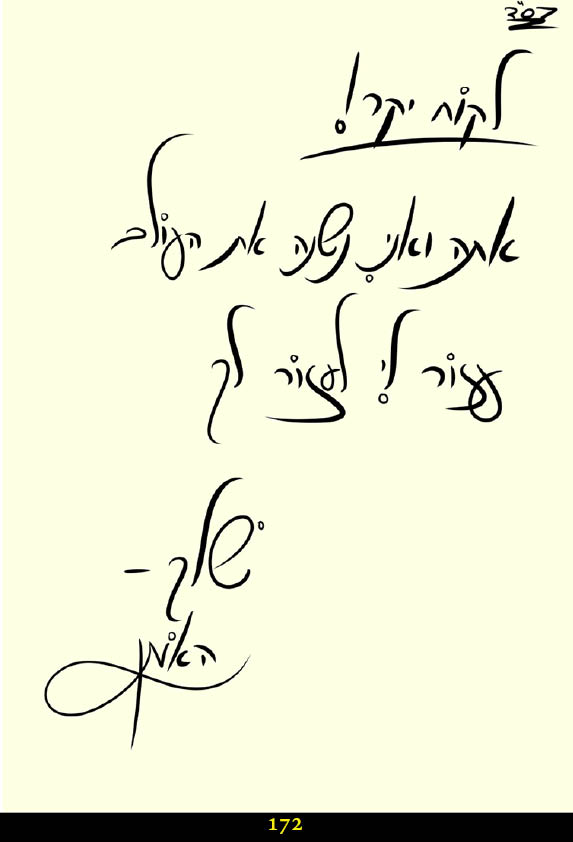 בס"ד
לקוח יקר!
אתה ואני נשנה את העולם
עזור לי לעזור לך
שלך -
האומן
172